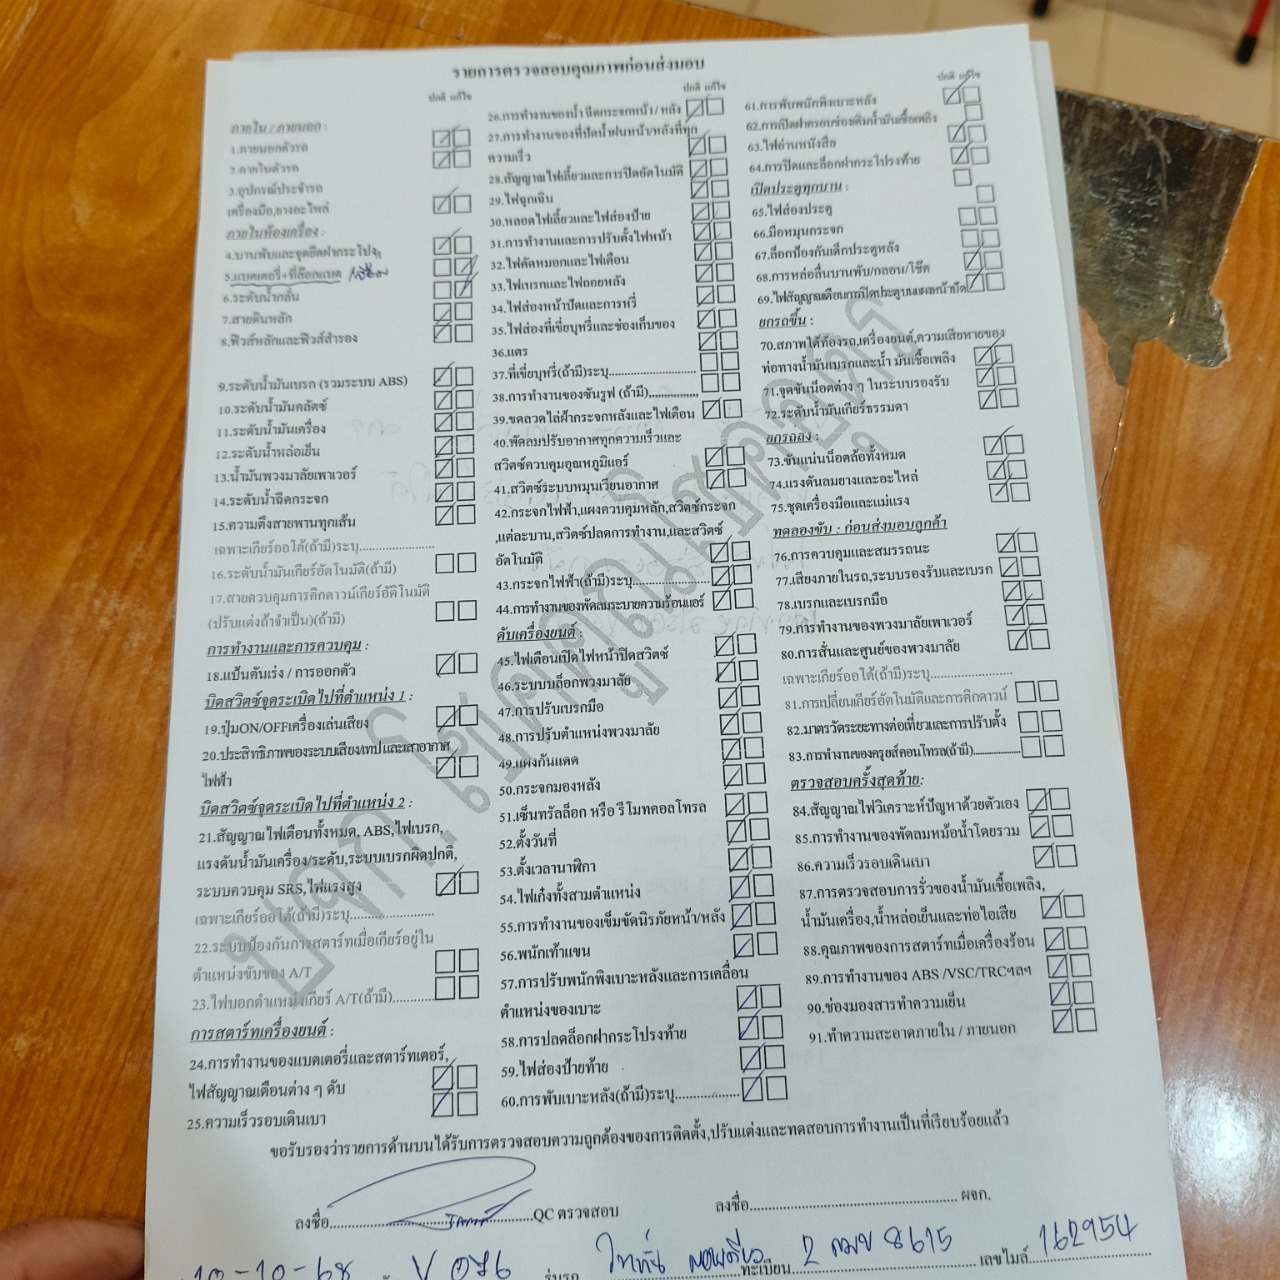 รายการตรวจสอบคุณภาพก่อนส่งมอบ
ปกติ แก้ไข
ภายใน / ภายนอก :
1.ภายนอกตัวรถ
2.ภายในตัวรถ
3.อุปกรณ์ประจำรถ
เครื่องมือ,ยางอะไหล่
ภายในห้องเครื่อง :
4.บานพับและจุดยึดฝากระโปรง
5.แบตเตอรี่+ที่ล๊อกแบต
6.ระดับน้ำกลั่น
7.สายดินหลัก
8.ฟิวส์หลักและฟิวส์สำรอง
9.ระดับน้ำมันเบรก (รวมระบบ ABS)
10.ระดับน้ำมันคลัตช์
11.ระดับน้ำมันเครื่อง
12.ระดับน้ำหล่อเย็น
13.น้ำมันพวงมาลัยเพาเวอร์
14.ระดับน้ำฉีดกระจก
15.ความตึงสายพานทุกเส้น
เฉพาะเกียร์ออโต้(ถ้ามี)ระบุ........................
16.ระดับน้ำมันเกียร์อัตโนมัติ(ถ้ามี)
17.สายควบคุมการคิกดาวน์เกียร์อัติโนมัติ
(ปรับแต่งถ้าจำเป็น)(ถ้ามี)
การทำงานและการควบคุม :
18.แป้นคันเร่ง / การออกตัว
บิดสวิตซ์จุดระเบิดไปที่ตำแหน่ง 1 :
19.ปุ่มON/OFFเครื่องเล่นเสียง
20.ประสิทธิภาพของระบบเสียง/เทป และเสาอากาศ
ไฟฟ้า
บิดสวิตซ์จุดระเบิดไปที่ตำแหน่ง 2 :
21.สัญญาณไฟเตือนทั้งหมด, ABS,ไฟเบรก,
แรงดันน้ำมันเครื่อง/ระดับ,ระบบเบรกผิดปกติ,
ระบบควบคุม SRS,ไฟแรงสูง
เฉพาะเกียร์ออโต้(ถ้ามี)ระบุ........................
22.ระบบป้องกันการสตาร์ทเมื่อเกียร์อยู่ใน
ตำแหน่งขับของ A/T
23.ไฟบอกตำแหน่งเกียร์ A/T(ถ้ามี)............
การสตาร์ทเครื่องยนต์ :
24.การทำงานของแบตเตอรี่และสตาร์ทเตอร์,
ไฟสัญญาณเตือนต่าง ๆ ดับ
25.ความเร็วรอบเดินเบา
ปกติ แก้ไข
26.การทำงานของน้ำ ฉีดกระจกหน้า/ หลัง
27.การทำงานของที่ปัดน้ำฝนหน้า/หลังที่ทุก
ความเร็ว
28.สัญญาณไฟเลี้ยวและการปิดอัตโนมัติ
29.ไฟฉุกเฉิน
30.หลอดไฟเลี้ยวและไฟส่องป้าย
31.การทำงานและการปรับตั้งไฟหน้า
32.ไฟตัดหมอกและไฟเตือน
33.ไฟเบรกและไฟถอยหลัง
34.ไฟส่องหน้าปัดและการหรี่
35.ไฟส่องที่เขี่ยบุหรี่และช่องเก็บของ
36.แตร
37.ที่เขี่ยบุหรี่(ถ้ามี)ระบุ............................
38.การทำงานของซันรูฟ (ถ้ามี)................
39.ขดลวดไล่ฝ้ากระจกหลังและไฟเตือน
40.พัดลมปรับอากาศทุกความเร็วและ
สวิตซ์ควบคุมอุณหภูมิแอร์
41.สวิตซ์ระบบหมุนเวียนอากาศ
42.กระจกไฟฟ้า,แผงควบคุมหลัก,สวิตซ์กระจก
,แต่ละบาน,สวิตซ์ปลดการทำงาน,และสวิตซ์
อัตโนมัติ
43.กระจกไฟฟ้า(ถ้ามี)ระบุ........................
44.การทำงานของพัดลมระบายความร้อนแอร์
ดับเครื่องยนต์ :
45.ไฟเตือนเปิดไฟหน้าปิดสวิตซ์
46.ระบบบล็อกพวงมาลัย
47.การปรับเบรกมือ
48.การปรับตำแหน่งพวงมาลัย
49.แผงกันแดด
50.กระจกมองหลัง
51.เซ็นทรัลล็อก หรือ รีโมทคอลโทรล
52.ตั้งวันที่
53.ตั้งเวลานาฬิกา
54.ไฟเก๋งทั้งสามตำแหน่ง
55.การทำงานของเข็มขัดนิรภัยหน้า/หลัง
56.พนักเท้าแขน
57.การปรับพนักพิงเบาะหลังและการเคลื่อน
ตำแหน่งของเบาะ
58.การปลดล็อกฝากระโปรงท้าย
59.ไฟส่องป้ายท้าย
60.การพับเบาะหลัง(ถ้ามี)ระบุ....................
ปกติ แก้ไข
61.การพับพนักพิงเบาะหลัง
62.การเปิดฝาครอบช่องเติมน้ำมันเชื้อเพลิง
63.ไฟอ่านหนังสือ
64.การปิดและล็อกฝากระโปรงท้าย
เปิดประตูทุกบาน :
65.ไฟส่องประตู
66.มือหมุนกระจก
67.ล็อกป้องกันเด็กประตูหลัง
68.การหล่อลื่นบานพับ/กลอน/โช๊ค
69.ไฟสัญญาณเตือนการปิดประตูบนแผงหน้าปัด
ยกรถขึ้น :
70.สภาพใต้ท้องรถ,เครื่องยนต์,ความเสียหายของ
ท่อทางน้ำมันเบรกและน้ำ มันเชื้อเพลิง
71.จุดขันน็อตต่าง ๆ ในระบบรองรับ
72.ระดับน้ำมันเกียร์ธรรมดา
ยกรถลง :
73.ขันแน่นน็อตล้อทั้งหมด
74.แรงดันลมยางและอะไหล่
75.ชุดเครื่องมือและแม่แรง
ทดลองขับ : ก่อนส่งมอบลูกค้า
76.การควบคุมและสมรรถนะ
77.เสียงภายในรถ,ระบบรองรับและเบรก
78.เบรกและเบรกมือ
79.การทำงานของพวงมาลัยเพาเวอร์
80.การสั่นและศูนย์ของพวงมาลัย
เฉพาะเกียร์ออโต้(ถ้ามี)ระบุ........................
81.การเปลี่ยนเกียร์อัตโนมัติและการคิกดาวน์
82.มาตรวัดระยะทางต่อเที่ยวและการปรับตั้ง
83.การทำงานของครุยส์คอนโทรล(ถ้ามี)....................
ตรวจสอบครั้งสุดท้าย:
84.สัญญาณไฟวิเคราะห์ปัญหาด้วยตัวเอง
85.การทำงานของพัดลมหม้อน้ำโดยรวม
86.ความเร็วรอบเดินเบา
87.การตรวจสอบการรั่วของน้ำมันเชื้อเพลิง,
น้ำมันเครื่อง,น้ำหล่อเย็นและท่อไอเสีย
88.คุณภาพของการสตาร์ทเมื่อเครื่องร้อน
89.การทำงานของ ABS /VSC/TRCฯลฯ
90.ช่องมองสารทำความเย็น
91.ทำความสะอาดภายใน / ภายนอก
ขอรับรองว่ารายการด้านบนได้รับการตรวจสอบความถูกต้องของการติดตั้ง,ปรับแต่งและทดสอบการทำงานเป็นที่เรียบร้อยแล้ว
ลงชื่อ........................................QC ตรวจสอบ ลงชื่อ........................................ ผจก.
10-10-68 V 076 รุ่นรถ ทะเบียน 2 ฒฆ 8615 เลขไมล์ 162954